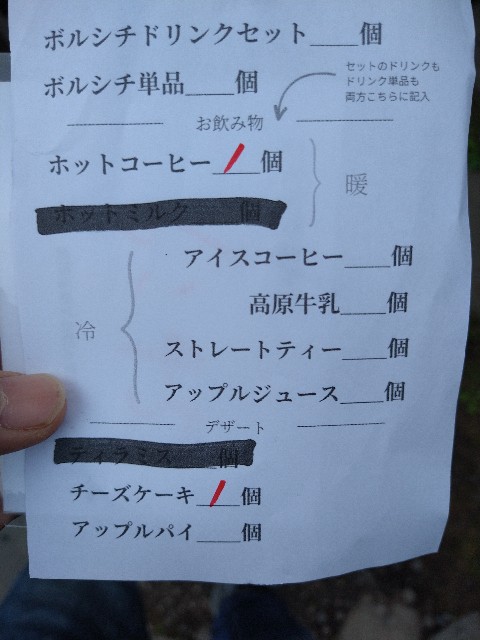 ボルシチドリンクセット____個
ボルシチ単品____個
セットのドリンクも
ドリンク単品も
両方こちらに記入
お飲み物
ホットコーヒー__/__個
暖
ホットミルク 個
アイスコーヒー____個
高原牛乳____個
冷
ストレートティー____個
アップルジュース____個
デザート
ティラミス__個
チーズケーキ__/__個
アップルパイ____個